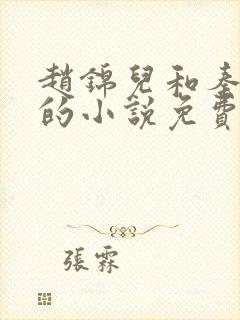 趙錦兒和秦
的小說免費
張霖